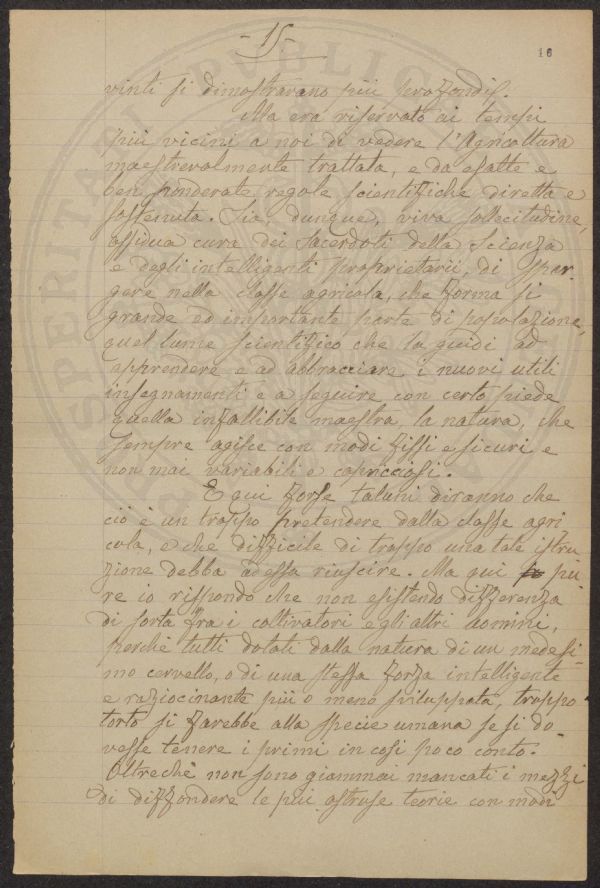 - 15 -
16
vinti si dimostravano più profondi.
Ma era riservato ai tempi
più vicini a noi di vedere l'Agricoltura
maestrevolmente trattata, e da esatte e
ben ponderate regole scientifiche diretta e
sostenuta. Sia, dunque, viva sollecitudine,
assidua cura dei Sacerdoti della Scienza
e degli intelligenti proprietarii, di spar-
gere nella classe agricola, che forma sì
grande ed importante parte di popolazione,
quel lume scientifico che la guidi ad
apprendere e ad abbracciare i nuovi utili
insegnamenti e a seguire con certo piede
quella infallibile maestra, la natura, che
sempre agisce con modi fissi e sicuri e
non mai variabili e capricciosi.
E qui forse taluni diranno che
ciò è un troppo pretendere dalla classe agri
cola, e che difficile di troppo una tale istru
zione debba ad essa riuscire. Ma qui pu
re io rispondo che non esistendo differenza
di sorta fra i coltivatori e gli altri uomini,
perchè tutti dotati dalla natura di un medesi-
mo cervello, o di una stessa forza intelligente
e raziocinante più o meno sviluppata, troppo
torto si farebbe alla specie umana se si do
vesse tenere i primi in così poco conto.
Oltrechè non sono giammai mancati i mezzi
di diffondere le più astruse teorie con modi
PROSPERITARI PUBLICAE